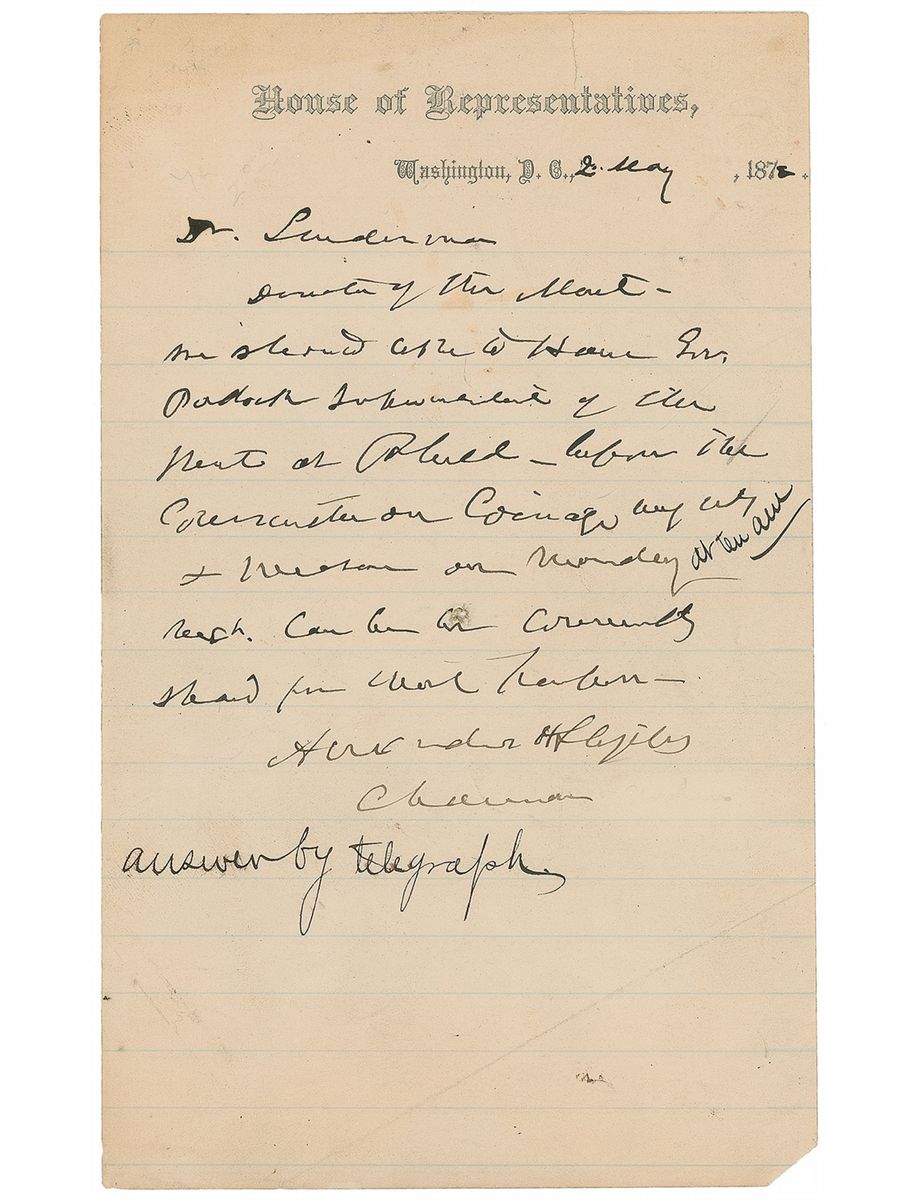 House of Representatives,
Washington, D. C., 2 May, 1878.
Dr. Linderman
Director of the Mint –
we should like to Have Gov.
Pollock Superintendent of the
Mint at Philad – before the
Committee on Coinage
& on Monday at ten am
next. Can he be
for
Alexander H Stephens
Chairman
answer by telegraph